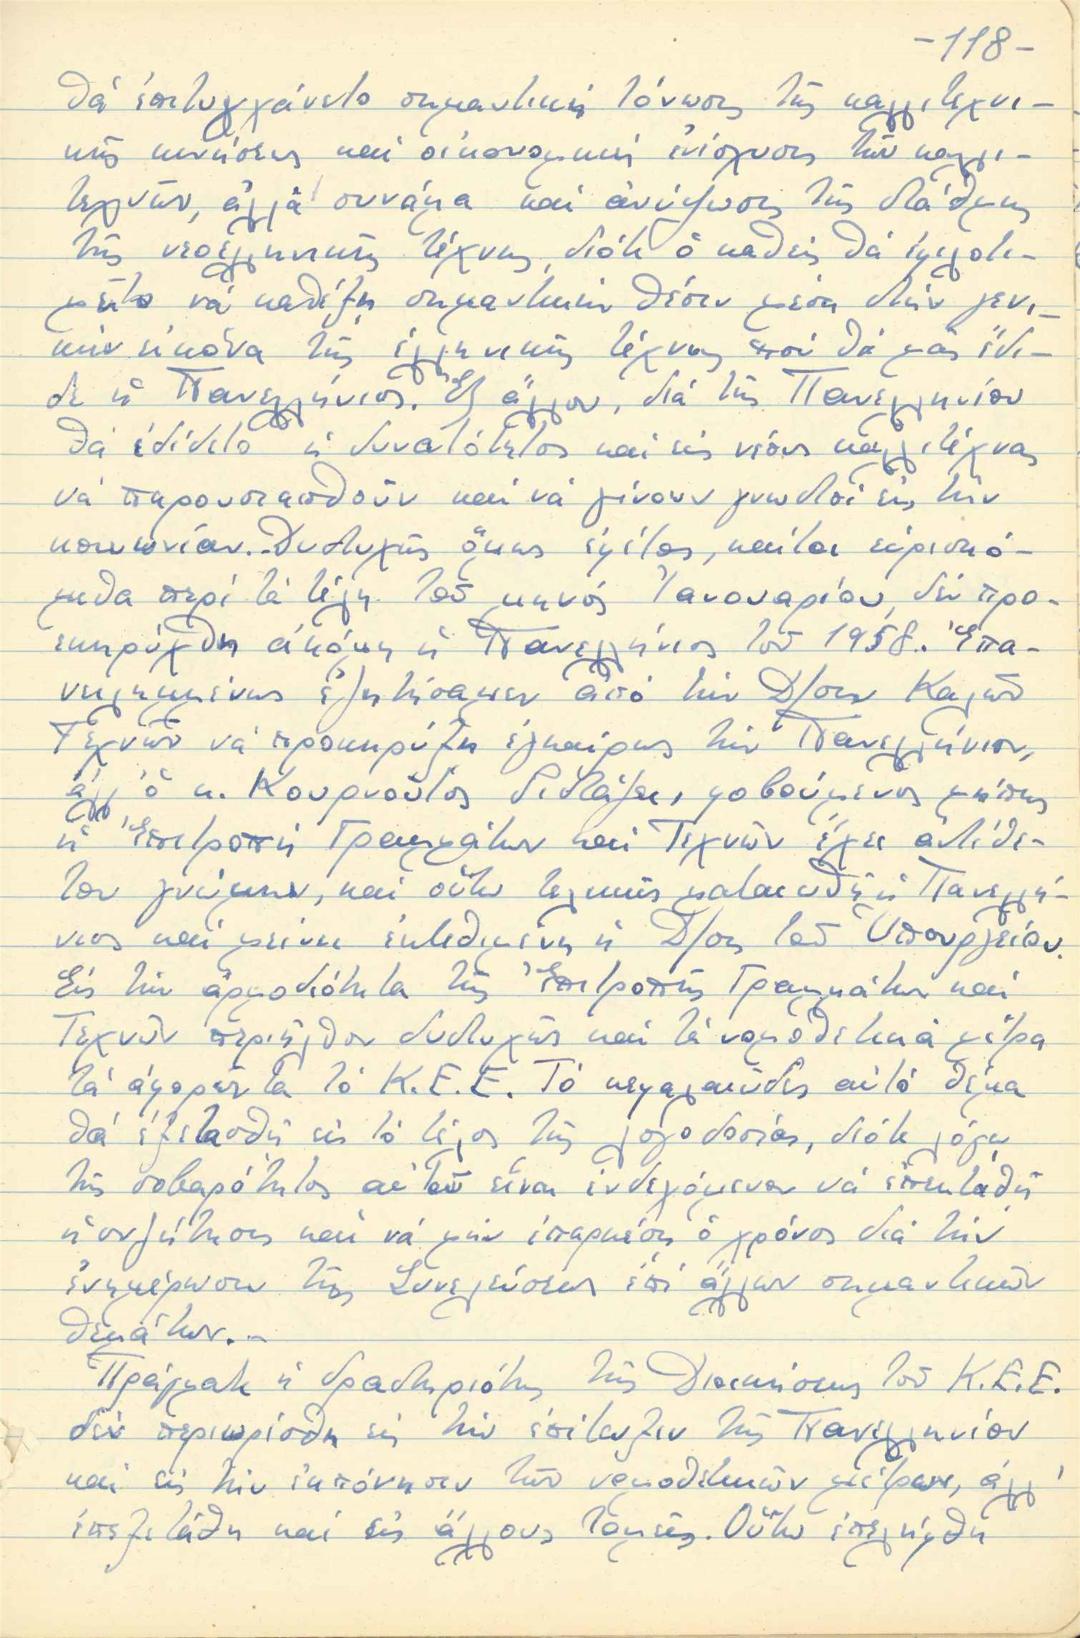 -118-
θά ἐπετυγχάνετο σημαντική τόνωσις τῆς καλλιτεχνι-
κῆς κινήσεως καί οἰκονομική ἐνίσχυσις τῶν καλλι-
τεχνῶν, ἀλλά συνάμα καί ἀνύψωσις τῆς στάθμης
τῆς νεοελληνικῆς τέχνης, διότι ὁ καθείς θά ἐφιλοτι-
μεῖτο νά καθέξη σημαντικήν θέσιν μέσα στήν γενι-
κήν εἰκόνα τῆς ἑλληνικῆς τέχνης πού θά μᾶς ἔδι-
δε ἡ Πανελλήνιος. Ἐξ ἄλλου, διά τῆς Πανελληνίου
θά ἐδίδετο ἡ δυνατότητος καί εἰς νέους καλλιτέχνας
νά παρουσιασθοῦν καί νά γίνουν γνωστοί εἰς τήν
κοινωνίαν. Δυστυχῶς ὅμως ἐφέτος, καίτοι εὑρισκό-
μεθα περί τά τέλη τοῦ μηνός Ἰανουαρίου, δέν προ-
εκηρύχθη ἀκόμη ἡ Πανελλήνιος τοῦ 1958. Ἐπα-
νειλημμένως ἐζητήσαμεν ἀπό τήν Δ/σιν Καλῶν
Τεχνῶν νά προκηρύξη ἐγκαίρως τήν Πανελλήνιον,
ἀλλ' ὁ κ. Κουρνοῦτος διστάζει, φοβούμενος μήπως
ἡ Ἐπιτροπή Γραμμάτων καί Τεχνῶν ἔχει ἀντίθε-
τον γνώμην, καί οὕτω τελικῶς ματαιωθῆ ἡ Πανελλή-
νιος καί μείνει ἐκτεθειμένη ἡ Δ/σις τοῦ Ὑπουργείου.
Εἰς τήν ἁρμοδιότητα τῆς Ἐπιτροπῆς Γραμμάτων καί
Τεχνῶν περιῆλθον δυστυχῶς καί τά νομοθετικά μέτρα
τά ἀφορῶντα τό Κ.Ε.Ε. Τό κεφαλαιῶδες αὐτό θέμα
θά ἐξετασθῆ εἰς τό τέλος τῆς λογοδοσίας, διότι λόγῳ
τῆς σοβαρότητος αὐτοῦ εἶναι ἐνδεχόμενον νά ἐπεκταθῆ
ἡ συζήτησις καί νά μήν ἐπαρκέση ὁ χρόνος διά τήν
ἐνημέρωσιν τῆς Συνελεύσεως ἐπί ἄλλων σημαντικῶν
θεμάτων.-
Πράγματι ἡ δραστηριότης τῆς Διοικήσεως τοῦ Κ.Ε.Ε.
δέν περιωρίσθη εἰς τήν ἐπίτευξιν τῆς Πανελληνίου
καί εἰς τήν ἐκπόνησιν τῶν νομοθετικῶν μέτρων, ἀλλ'
ἐπεξετάθη καί εἰς ἄλλους τομεῖς. Οὕτω ἐπελήφθη